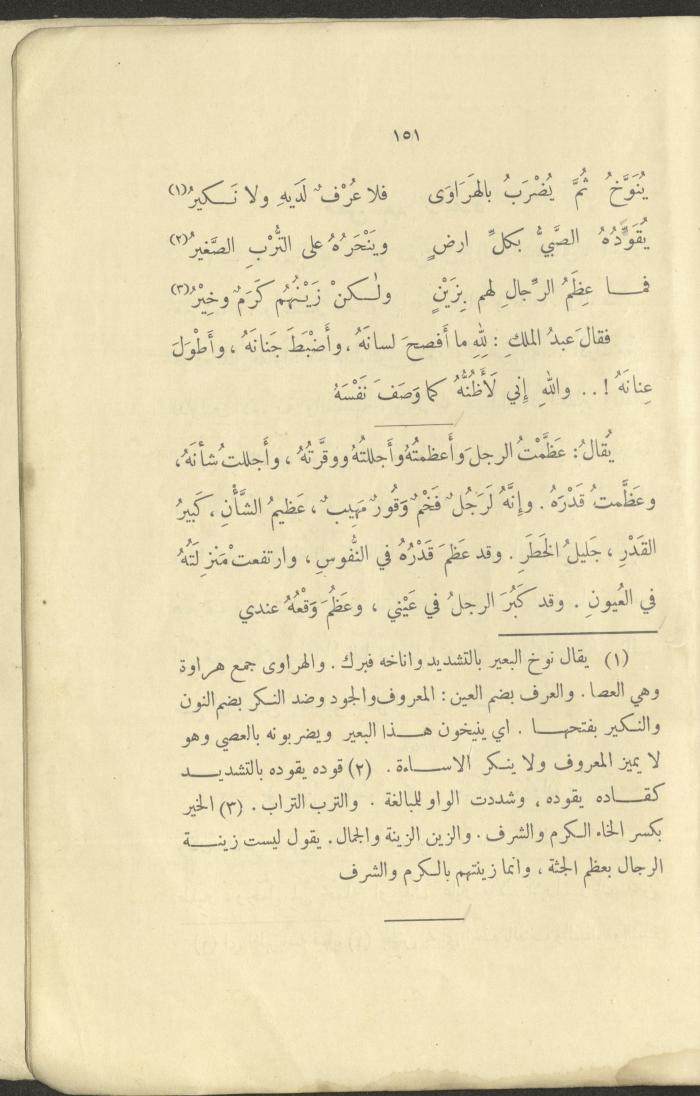 ١٥١
يُنَوَّخُ ثُمَّ يُضْرَبُ بالهَرَاوَى فلا عُرْفٌ لَدَيهِ ولا نَكيرُ(١)
يُقَوِّدُهُ الصَّبيُّ بكلِّ ارضٍ ويَنْحَرُهُ على التُّرْبِ الصَّغيرُ(٢)
فما عِظَمُ الرِّجالِ لهم بِزَيْنٍ ولكنْ زَيْنُهُم كَرَمٌ وخِيْرُ(٣)
فقالَ عبدُ الملكِ : للهِ ما أَفصحَ لسانَهُ ، وأَضْبَطَ جَنانَهُ ، وأَطْوَلَ
عِنانَهُ !.. واللهِ إِني لَأَظُنُّهُ كما وَصَفَ نَفْسَهُ
يُقالُ: عَظَّمْتُ الرجلَ وأَعظمتُهُ وأَجللتُهُ ووقَّرتُهُ ، وأَجللتُ شأنَهُ ،
وعَظَّمتُ قَدْرَهُ . وإِنَّهُ لَرَجُلٌ فَخْمٌ وَقُورٌ مَهِيبٌ ، عَظيمُ الشَّأْنِ ، كَبيرُ
القَدْرِ ، جَليلُ الخَطَرِ . وقد عَظُمَ قَدْرُهُ في النُّفوسِ ، وارتفعتْ مَنزِلَتُهُ
في العُيونِ . وقد كَبُرَ الرجلُ في عَيْني ، وعَظُمَ وَقْعُهُ عندي
(١) يقال نوخ البعير بالتشديد واناخه فبرك . والهراوى جمع هراوة
وهي العصا . والعرف بضم العين : المعروف والجود وضد النكر بضم النون
والنكير بفتحها . اي ينيخون هذا البعير ويضربونه بالعصي وهو
لا يميز المعروف ولا ينكر الاساءة . (٢) قوده يقوده بالتشديد
كقاده يقوده ، وشددت الواو للبالغة . والترب التراب . (٣) الخير
بكسر الخاء الكرم والشرف . والزين الزينة والجمال . يقول ليست زينة
الرجال بعظم الجثة ، وانما زينتهم بالكرم والشرف